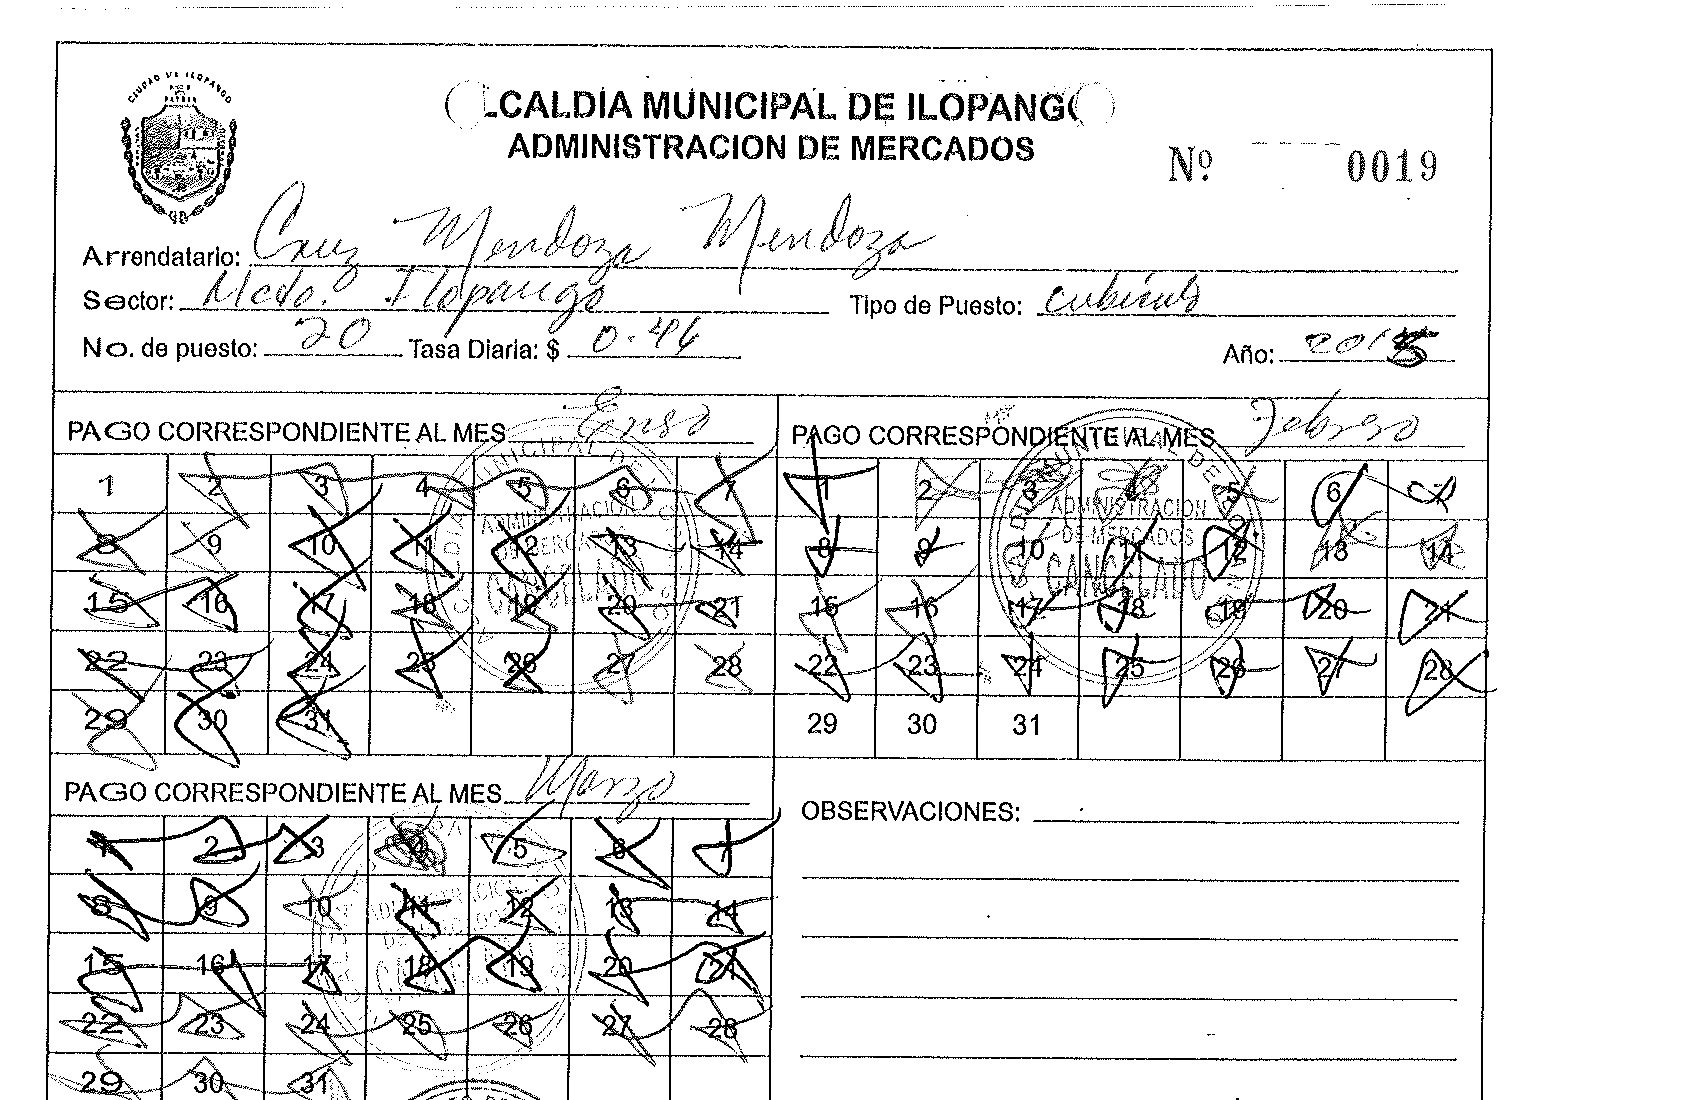 CIUDAD DE ILOPANGO
ALCALDIA MUNICIPAL DE ILOPANGO
ADMINISTRACION DE MERCADOS
Nº 0019
Arrendatario: Cruz Mendoza Mendoza
Sector: Mcdo. Ilopango Tipo de Puesto: cubiculo
No. de puesto: 20 Tasa Diaria: $ 0.46 Año: 2015
PAGO CORRESPONDIENTE AL MES Enero
1 2 3 4 5 6 7
8 9 10 11 12 13 14
15 16 17 18 19 20 21
22 23 24 25 26 27 28
29 30 31
ADMINISTRACION
DE MERCADOS
CANCELADO
PAGO CORRESPONDIENTE AL MES Febrero
1 2 3 4 5 6 7
8 9 10 11 12 13 14
15 16 17 18 19 20 21
22 23 24 25 26 27 28
29 30 31
ADMINISTRACION
DE MERCADOS
CANCELADO
PAGO CORRESPONDIENTE AL MES Marzo
1 2 3 4 5 6 7
8 9 10 11 12 13 14
15 16 17 18 19 20 21
22 23 24 25 26 27 28
29 30 31
OBSERVACIONES: